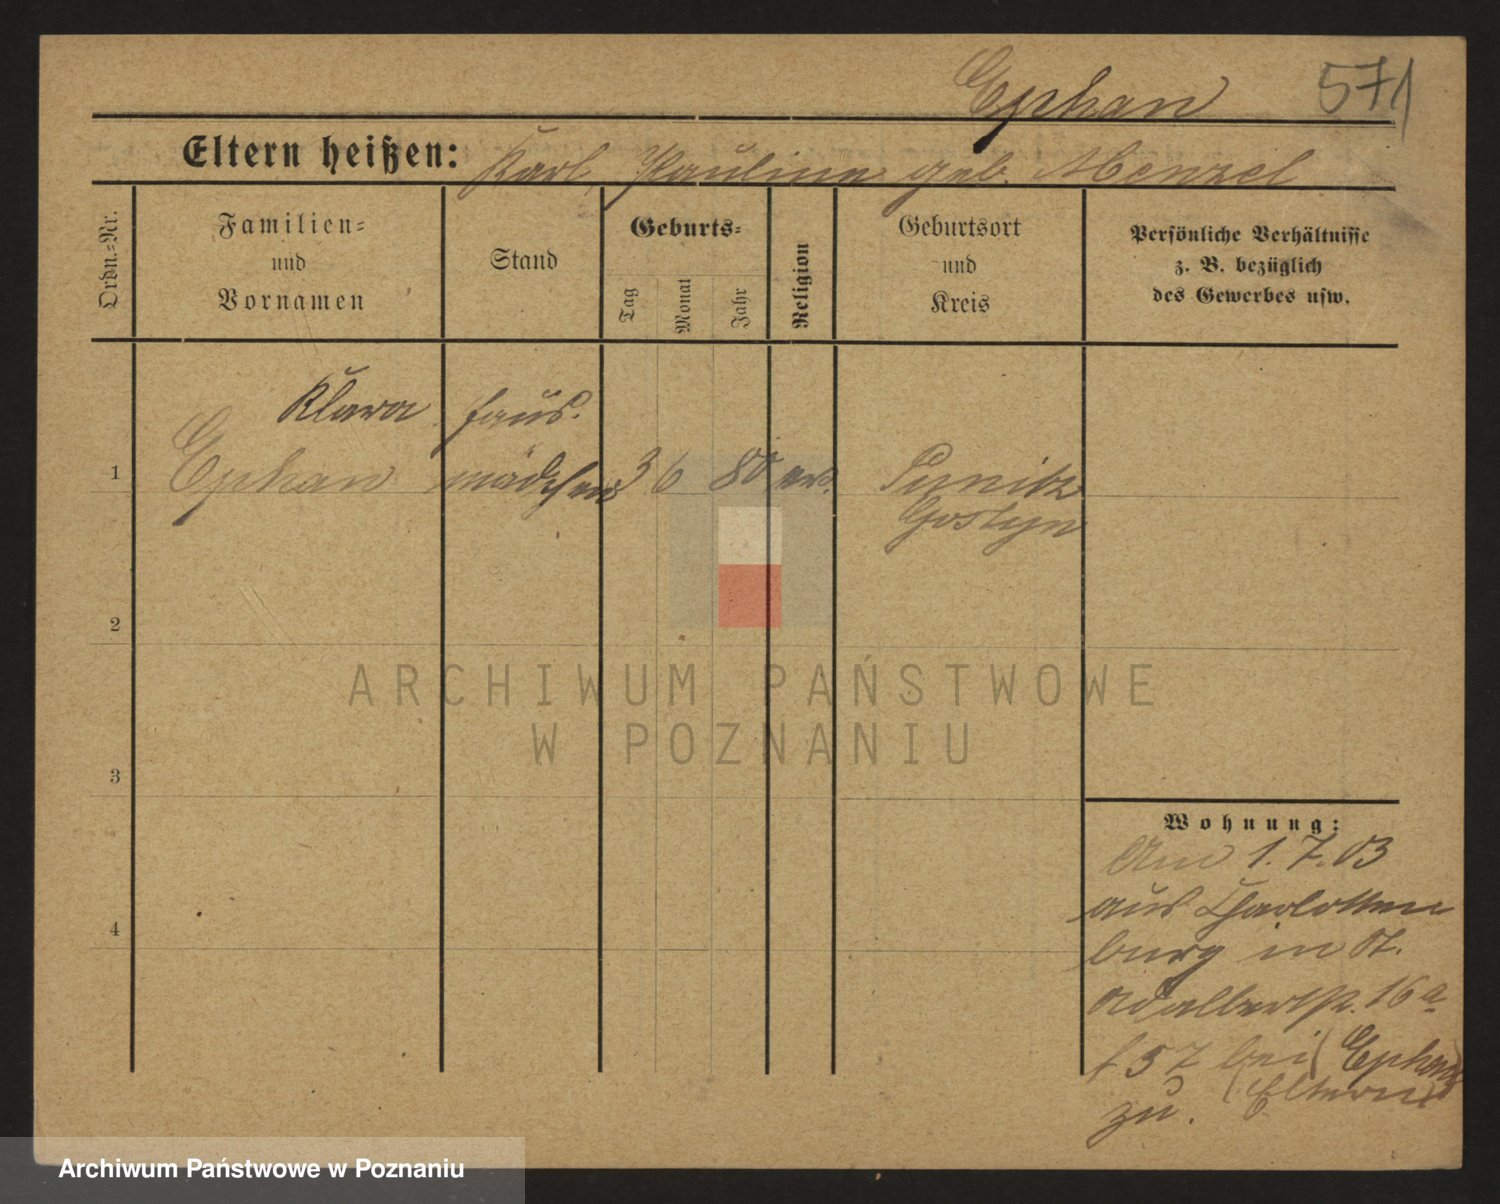 Ephan 571
Eltern heißen: Karl, Pauline geb. Menzel
Ordn.-Nr.
Familien-
und
Vornamen
Stand
Geburts-
Tag
Monat
Jahr
Religion
Geburtsort
und
Kreis
Persönliche Verhältnisse
z. B. bezüglich
des Gewerbes usw.
Klara Haus-
1 Ephan mädchen 3 6 80 ev. Punitz
Gostyn
2
3
4
Wohnung:
Am 1.7.03
aus Charlotten
burg in St.
Adalbertstr. 16a
bei (Ephan)
zu. (Eltern)
ARCHIWUM PAŃSTWOWE
W POZNANIU
Archiwum Państwowe w Poznaniu